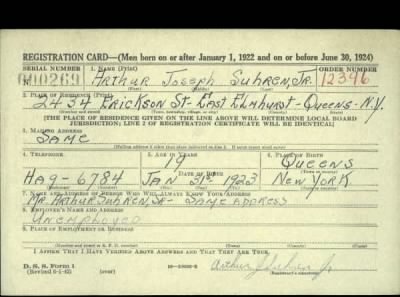 REGISTRATION CARD—(Men born on or after January 1, 1922 and on or before June 30, 1924)
SERIAL NUMBER 1. NAME (Print) ORDER NUMBER
N000269 ARTHUR JOSEPH SUHREN, JR. 12346
(First) (Middle) (Last)
2. PLACE OF RESIDENCE (Print)
2434 ERICKSON ST-EAST ELMHURST-QUEENS-N.Y.
[THE PLACE OF RESIDENCE GIVEN ON THE LINE ABOVE WILL DETERMINE LOCAL BOARD
JURISDICTION; LINE 2 OF REGISTRATION CERTIFICATE WILL BE IDENTICAL]
3. MAILING ADDRESS
SAME
[Mailing address if other than place indicated on line 2. If same insert word same]
4. TELEPHONE 5. AGE IN YEARS 6. PLACE OF BIRTH
19 QUEENS
DATE OF BIRTH
HA9-6784 JAN 31ST 1923 NEW YORK
7. NAME AND ADDRESS OF PERSON WHO WILL ALWAYS KNOW YOUR ADDRESS
MR. ARTHUR SUHREN, SR- SAME ADDRESS
8. EMPLOYER'S NAME AND ADDRESS
UNEMPLOYED
9. PLACE OF EMPLOYMENT OR BUSINESS
I AFFIRM THAT I HAVE VERIFIED ABOVE ANSWERS AND THAT THEY ARE TRUE.
D. S. S. Form 1
(Revised 6-1-42) Arthur J Suhren Jr